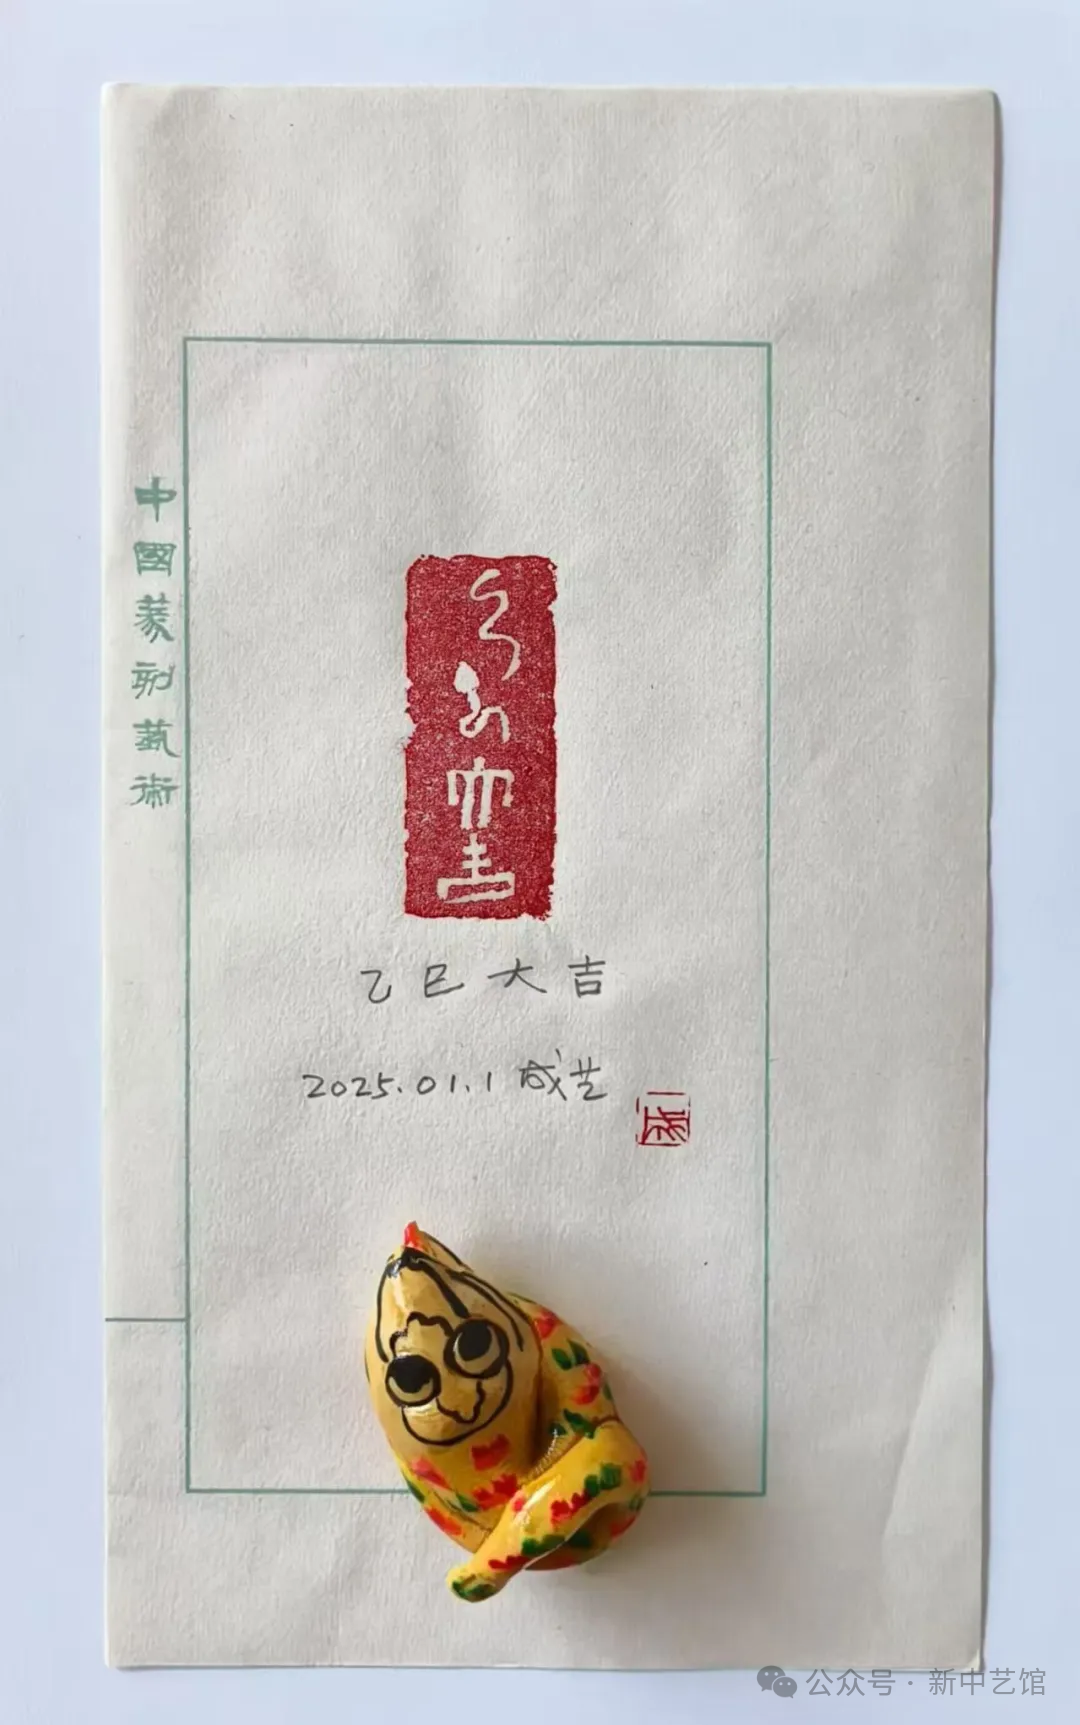 中國篆刻藝術
乙巳大吉
乙巳大吉
2025.01.1 成艺
公众号 · 新中艺馆